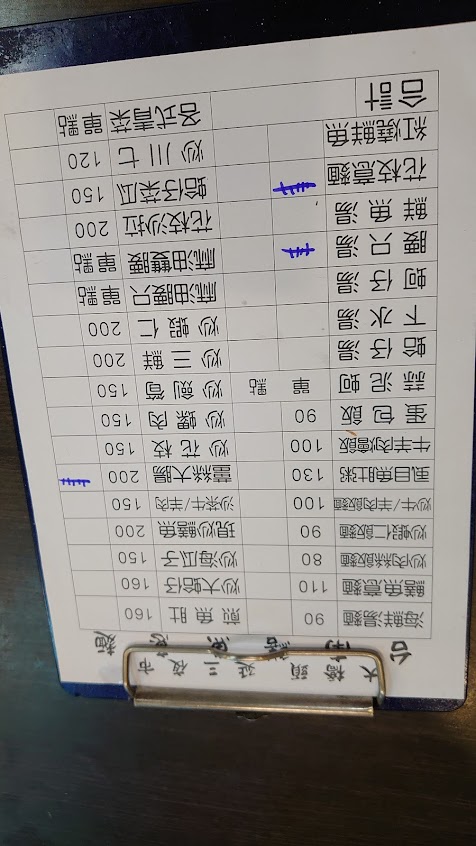 大 頭 三 夜 市
台 南 麵
海鮮湯麵 90 煎 魚 肚 160
鱔魚意麵 110 炒大蛤仔 160
炒肉絲飯麵 80 炒海瓜子 150
炒蝦仁飯麵 90 現炒鱔魚 200
炒牛/羊肉飯麵 100 沙茶牛/羊肉 150
虱目魚肚粥 130 薑絲大腸 200
牛羊肉燴飯 100 炒 花 枝 150
蛋 包 飯 90 炒 螺 肉 150
蒜 泥 蚵 單 點 炒 劍 筍 150
蛤 仔 湯 炒 三 鮮 200
下 水 湯 炒 蝦 仁 200
蚵 仔 湯 麻油腰只 單點
腰 只 湯 麻油雙腰 單點
鮮 魚 湯 花枝沙拉 200
花枝意麵 蛤仔菜瓜 150
紅燒鮮魚 炒 川 七 120
合計 各式青菜 單點